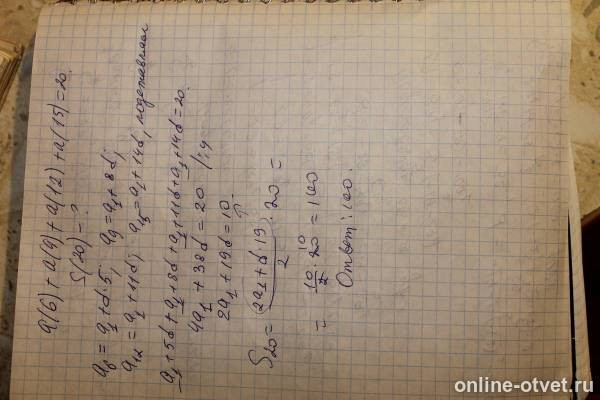 a(6)+a(9)+a(12)+a(15)=20.
S(20)=?
a₆=a₁+d·5; a₉=a₁+8d;
a₁₂=a₁+11d; a₁₅=a₁+14d, подставляем
a₁+5d+a₁+8d+a₁+11d+a₁+14d=20.
4a₁+38d=20 /:2
2a₁+19d=10.
S₂₀=(2a₁+d·19)/2·20=
=10/2·20=100
10
Ответ: 100.
online-otvet.ru